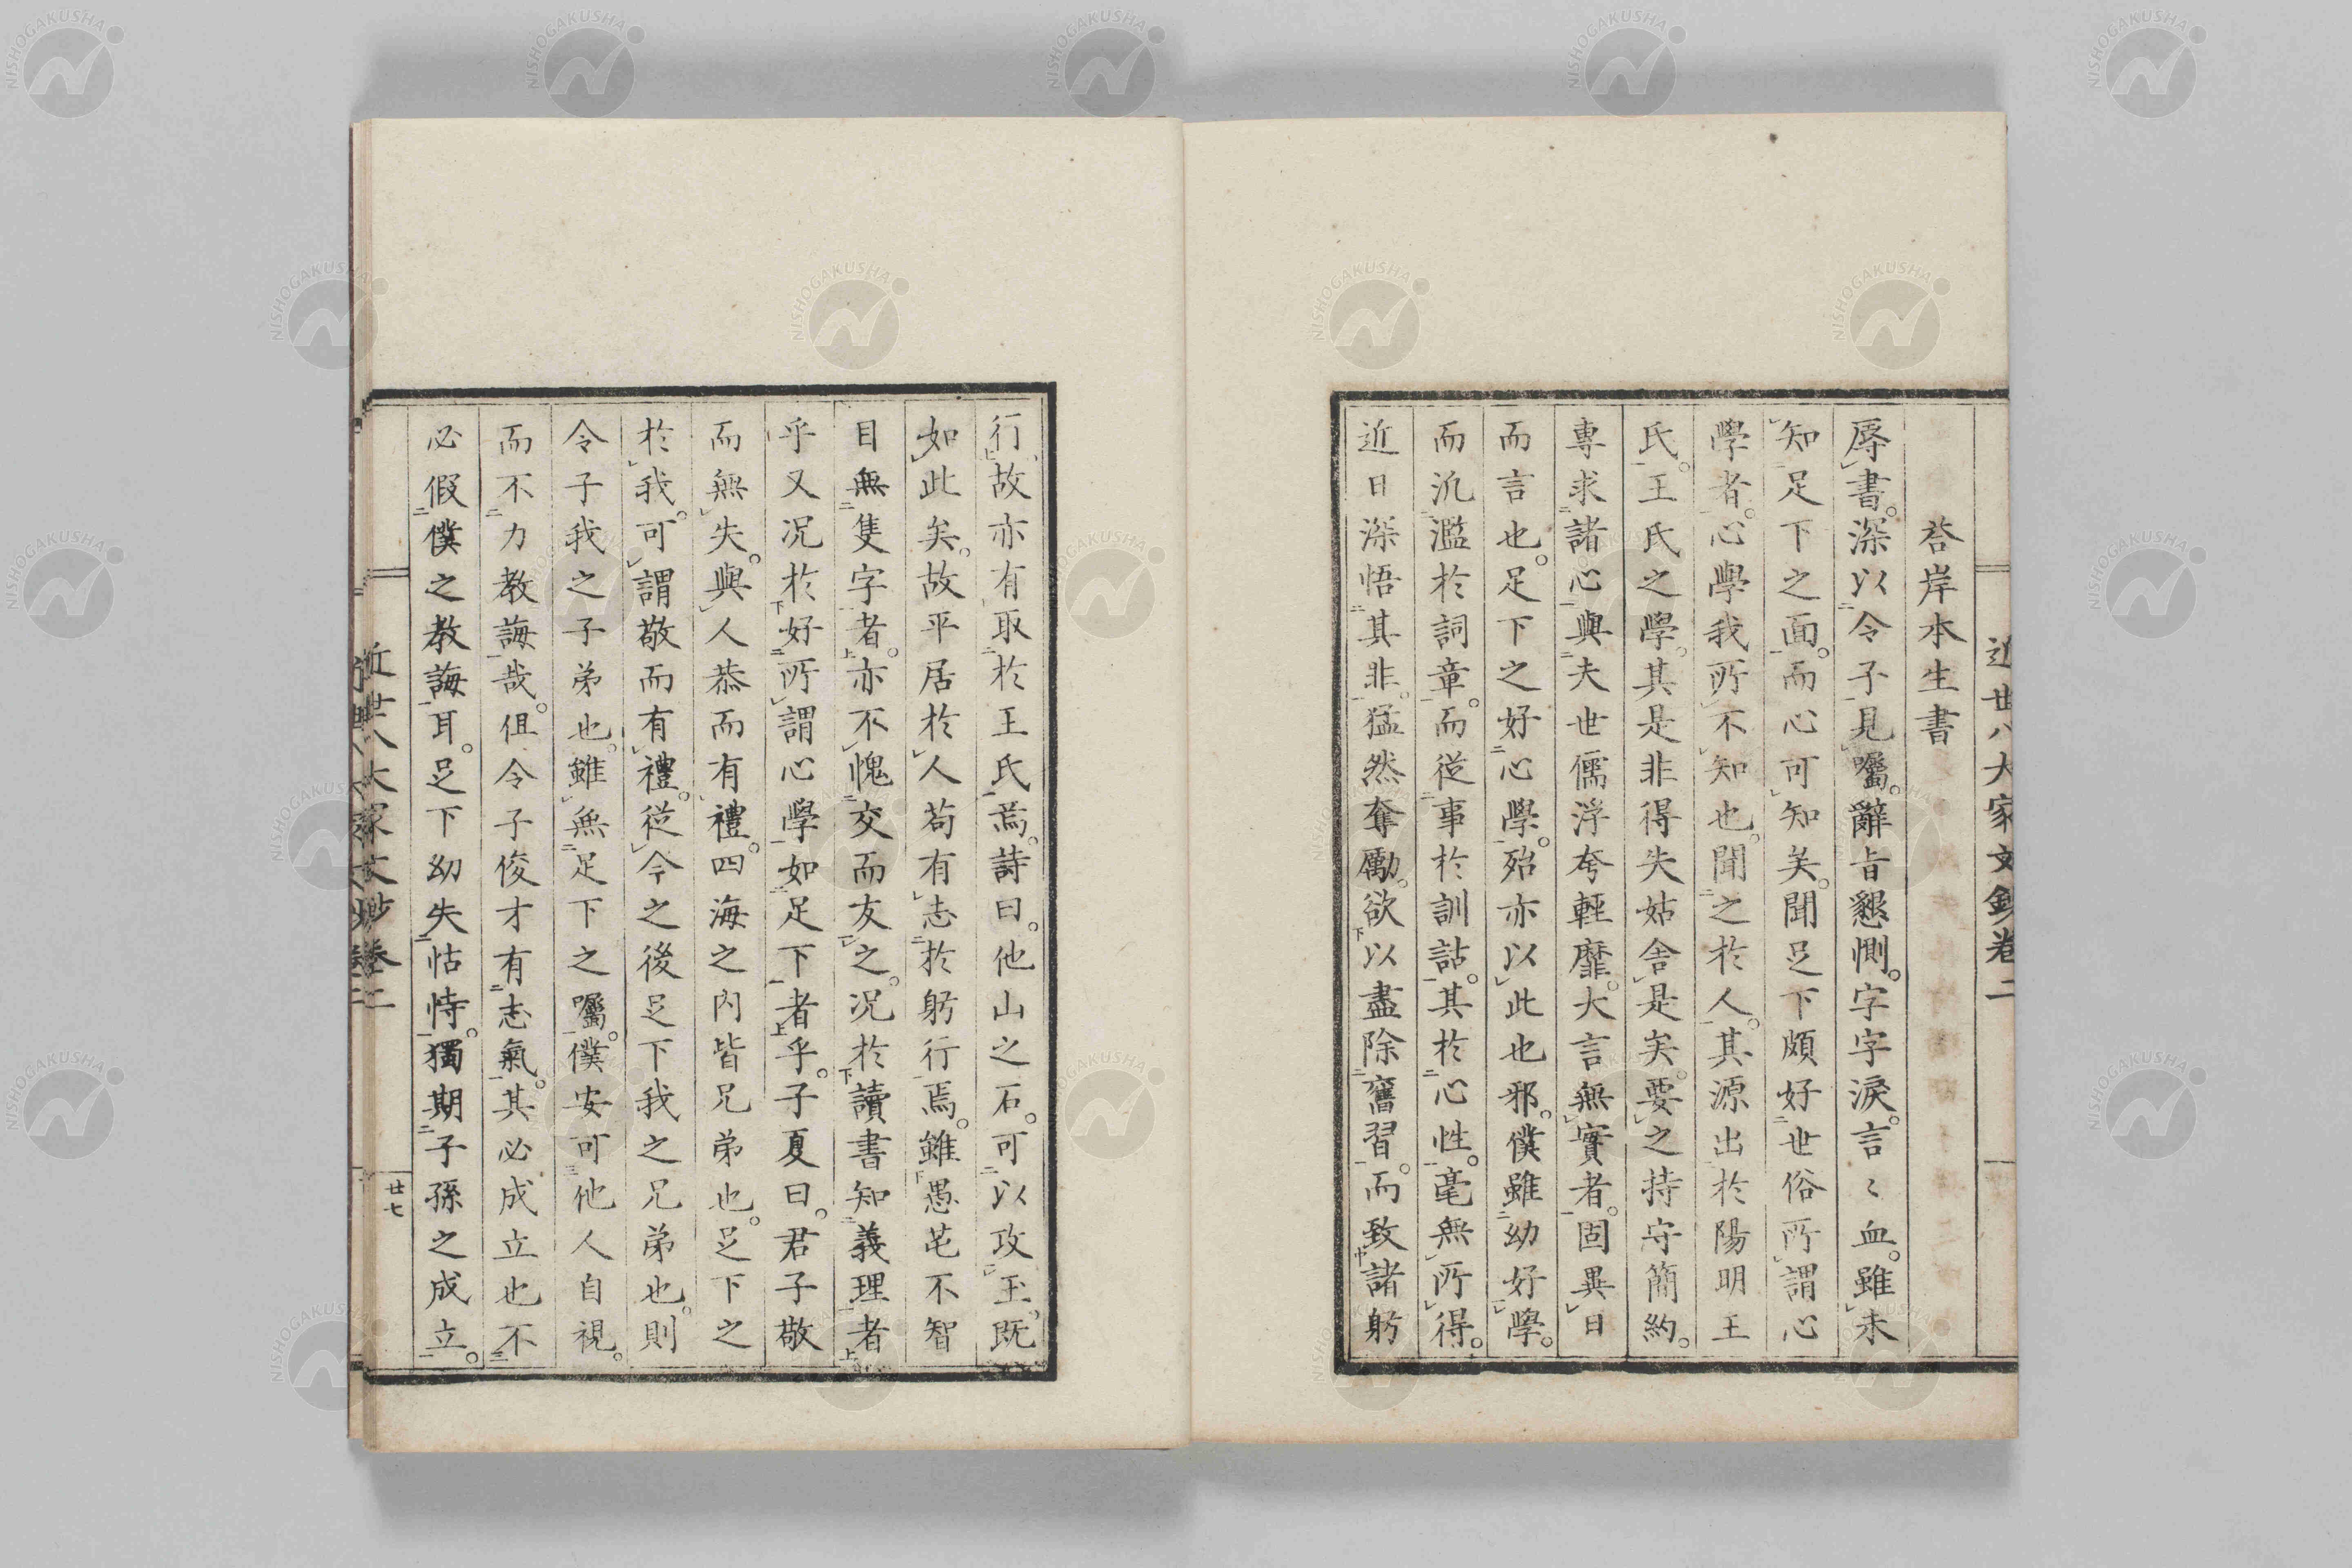 近世八大家文鈔卷二
荅岸本生書
辱書。深以令子見囑。辭旨懇惻。字字淚。言〻血。雖未
知足下之面。而心可知矣。聞足下頗好世俗所謂心
學者。心學我所不知也。聞之於人。其源出於陽明王
氏。王氏之學。其是非得失姑舍是矣。要之持守簡約。
專求諸心。與夫世儒浮夸輕靡。大言無實者。固異日
而言也。足下之好心學。殆亦以此也邪。僕雖幼好學。
而汎濫於詞章。而從事於訓詁。其於心性。毫無所得。
近日深悟其非。猛然奪勵。欲以盡除舊習。而致諸躬
行。故亦有取於王氏焉。詩曰。他山之石。可以攻玉。既
如此矣。故平居於人苟有志於躬行焉。雖愚芒不智
目無隻字者。亦不愧交而友之。況於讀書知義理者
乎又況於好所謂心學如足下者乎。子夏曰。君子敬
而無失。與人恭而有禮。四海之內皆兄弟也。足下之
於我。可謂敬而有禮。從今之後足下我之兄弟也。則
令子我之子弟也。雖無足下之囑。僕安可他人自視。
而不力教誨哉。但令子俊才有志氣。其必成立也不
必假僕之教誨耳。足下幼失怙恃。獨期子孫之成立。
近世八大家文鈔卷二
廿七
NISHOGAKUSHA